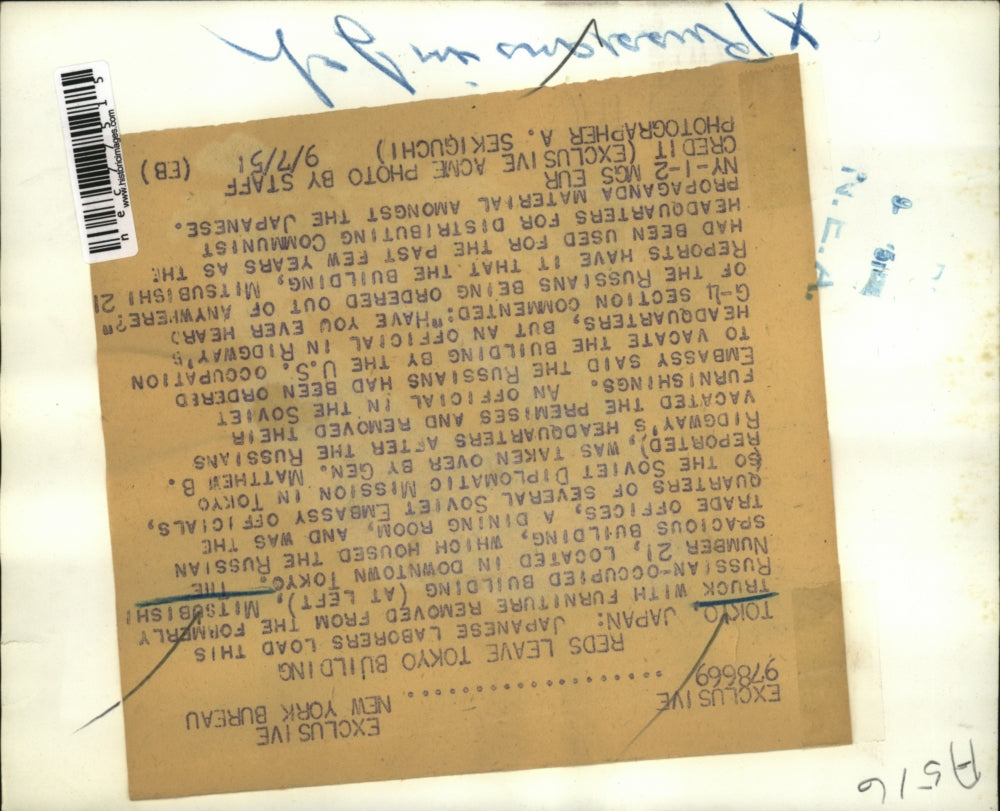 EXCLUSIVE
EXCLUSIVE
978669 .................... NEW YORK BUREAU
REDS LEAVE TOKYO BUILDING
TOKYO, JAPAN: JAPANESE LABORERS LOAD THIS
TRUCK WITH FURNITURE REMOVED FROM THE FORMERLY
RUSSIAN-OCCUPIED BUILDING (AT LEFT), MITSUBISHI
NUMBER 21, LOCATED IN DOWNTOWN TOKYO. THE
SPACIOUS BUILDING, WHICH HOUSED THE RUSSIAN
TRADE OFFICES, A DINING ROOM, AND WAS THE
QUARTERS OF SEVERAL SOVIET EMBASSY OFFICIALS,
(SO THE SOVIET DIPLOMATIC MISSION IN TOKYO
REPORTED), WAS TAKEN OVER BY GEN. MATTHEW B.
RIDGWAY'S HEADQUARTERS AFTER THE RUSSIANS
VACATED THE PREMISES AND REMOVED THEIR
FURNISHINGS. AN OFFICIAL IN THE SOVIET
EMBASSY SAID THE RUSSIANS HAD BEEN ORDERED
TO VACATE THE BUILDING BY THE U.S. OCCUPATION
HEADQUARTERS, BUT AN OFFICIAL IN RIDGWAY'S
G-4 SECTION COMMENTED: "HAVE YOU EVER HEARD
OF THE RUSSIANS BEING ORDERED OUT OF ANYWHERE?"
REPORTS HAVE IT THAT THE BUILDING, MITSUBISHI 21
HAD BEEN USED FOR THE PAST FEW YEARS AS THE
HEADQUARTERS FOR DISTRIBUTING COMMUNIST
PROPAGANDA MATERIAL AMONGST THE JAPANESE.
NY-1-2 MGS EUR
CREDIT (EXCLUSIVE ACME PHOTO BY STAFF
PHOTOGRAPHER A. SEKIGUCHI) 9/7/51 (EB)
X Russians in Jap
N.E.A.
A516
www.historicimages.com
nec77515